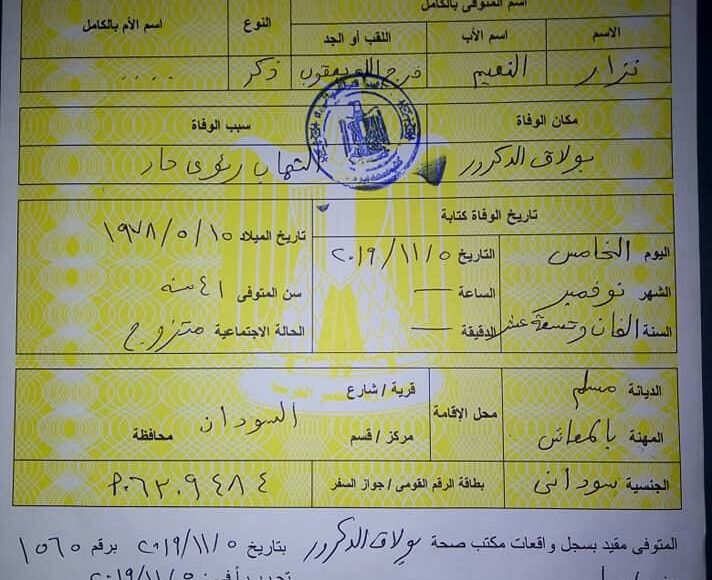 اسم المتوفى بالكامل
الاسم اسم الأب اللقب أو الجد النوع اسم الأم بالكامل
نزار النعيم فرج الله يعقوب ذكر ....
مكان الوفاة سبب الوفاة
بولاق الدكرور التهاب رئوى حاد
تاريخ الوفاة كتابة
اليوم الخامس التاريخ ٢٠١٩/١١/٥ تاريخ الميلاد ١٩٧٨/٥/١٥
الشهر نوفمبر الساعة — سن المتوفى ٤١ سنه
السنة الفان وتسعة عشر الدقيقة — الحالة الاجتماعية متزوج
الديانة مسلم محل الإقامة قرية / شارع
المهنة بالمعاش مركز / قسم السودان محافظة
الجنسية سودانى بطاقة الرقم القومى / جواز السفر ٠٦٣٠٩٤٨٤
المتوفى مقيد بسجل واقعات مكتب صحة بولاق الدكرور بتاريخ ٢٠١٩/١١/٥ برقم ١٥٦٥
٢٠١٩/١١/٥